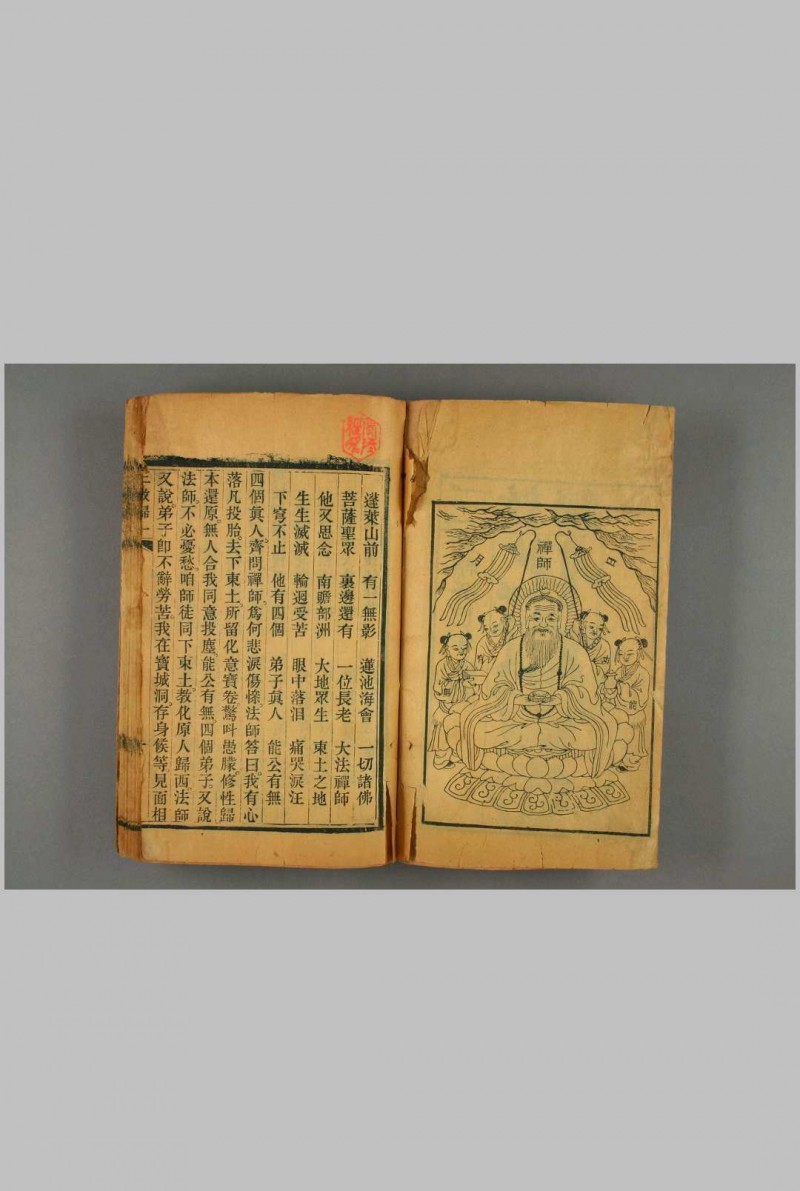 禪師
日
月
蓬萊山前 有一無影 蓮池海會 一切諸佛
菩薩聖眾 裏邊還有 一位長老 大法禪師
他又思念 南贍部洲 大地眾生 東土之地
生生滅滅 輪迴受苦 眼中落泪 痛哭淚汪
下穹不止 他有四個 弟子真人 能公有無
四個真人齊問禪師爲何悲淚傷慘。法師答曰。我有心
落凡投胎。去下東土。所留化意寶卷。驚叫愚朦。修性歸
本還原。無人合我同意投塵。能公有無。四個弟子。又說
法師不必憂愁。咱師徒同下東土。教化原人歸西。法師
又說弟子卽不辭勞苦。我在寶城洞存身候等見面相
三教歸一